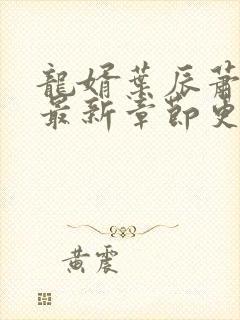 龍婿葉辰蕭
最新章節更
黃震